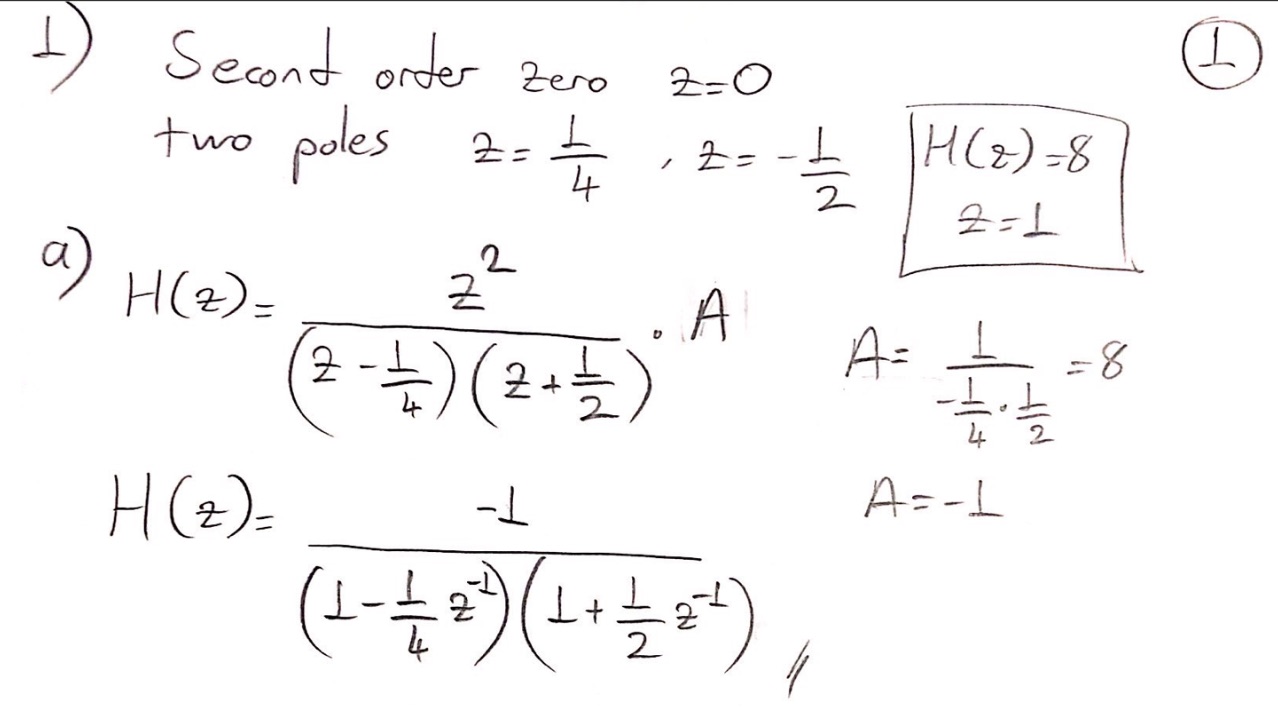 1) Second order zero z=0 ①
two poles z=1/4 , z=-1/2
H(z)=8
z=1
a) H(z)= z²/((z-1/4)(z+1/2)) . A
A= 1/(-1/4 . 1/2) =8
H(z)= -1/((1-1/4 z⁻¹)(1+1/2 z⁻¹)) //
A=-1